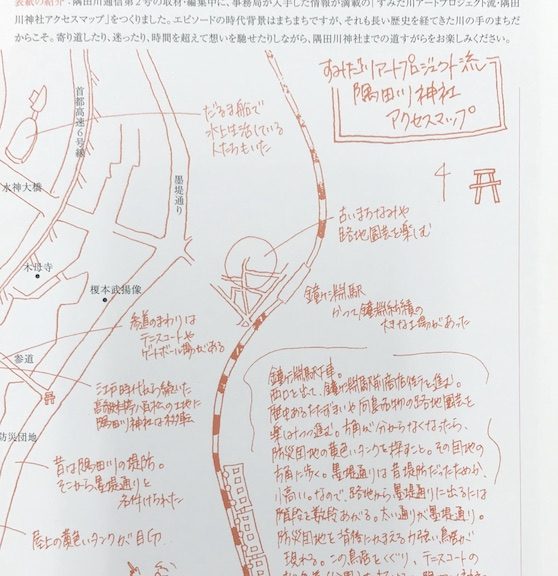 表紙の紹介：隅田川通信第2号の取材・編集中に、事務局が入手した情報が満載の「すみだ川アートプロジェクト流・隅田
川神社アクセスマップ」をつくりました。エピソードの時代背景はまちまちですが、それも長い歴史を経てきた川の手のまちだ
からこそ。寄り道したり、迷ったり、時間を超えて想いを馳せたりしながら、隅田川神社までの道すがらをお楽しみください。
すみだ川アートプロジェクト流
隅田川神社
アクセスマップ
首都高速6号線
だるま船で
水上生活している
人たちもいた
墨堤通り
水神大橋
古いまちなみや
路地園芸を楽しむ
木母寺
榎本武揚像
鐘ヶ淵駅
かつて鐘淵紡績の
大きな工場があった
参道のまわりは
テニスコートや
ゲートボール場がある
参道
江戸時代から続いた
高級料亭 の土地に
隅田川神社は移転
防災団地
昔は隅田川の堤防。
そこから墨堤通りと
名付けられた
屋上の黄色いタンクが目印
鐘ヶ淵駅下車。
西口を出て、鐘ヶ淵駅前商店街を進む。
歴史あるたたずまいや向島名物の路地園芸を
楽しみつつ進む。方角が分からなくなったら、
防災団地の黄色いタンクを探すこと。その団地の
方角に歩く。墨堤通りは昔堤防だったためか、
小高い。なので、路地から墨堤通りに出るには
階段を数段あがる。太い通りが墨堤通り。
防災団地を背後にたたえる力強い鳥居が
現れる。この鳥居をくぐり、テニスコートの